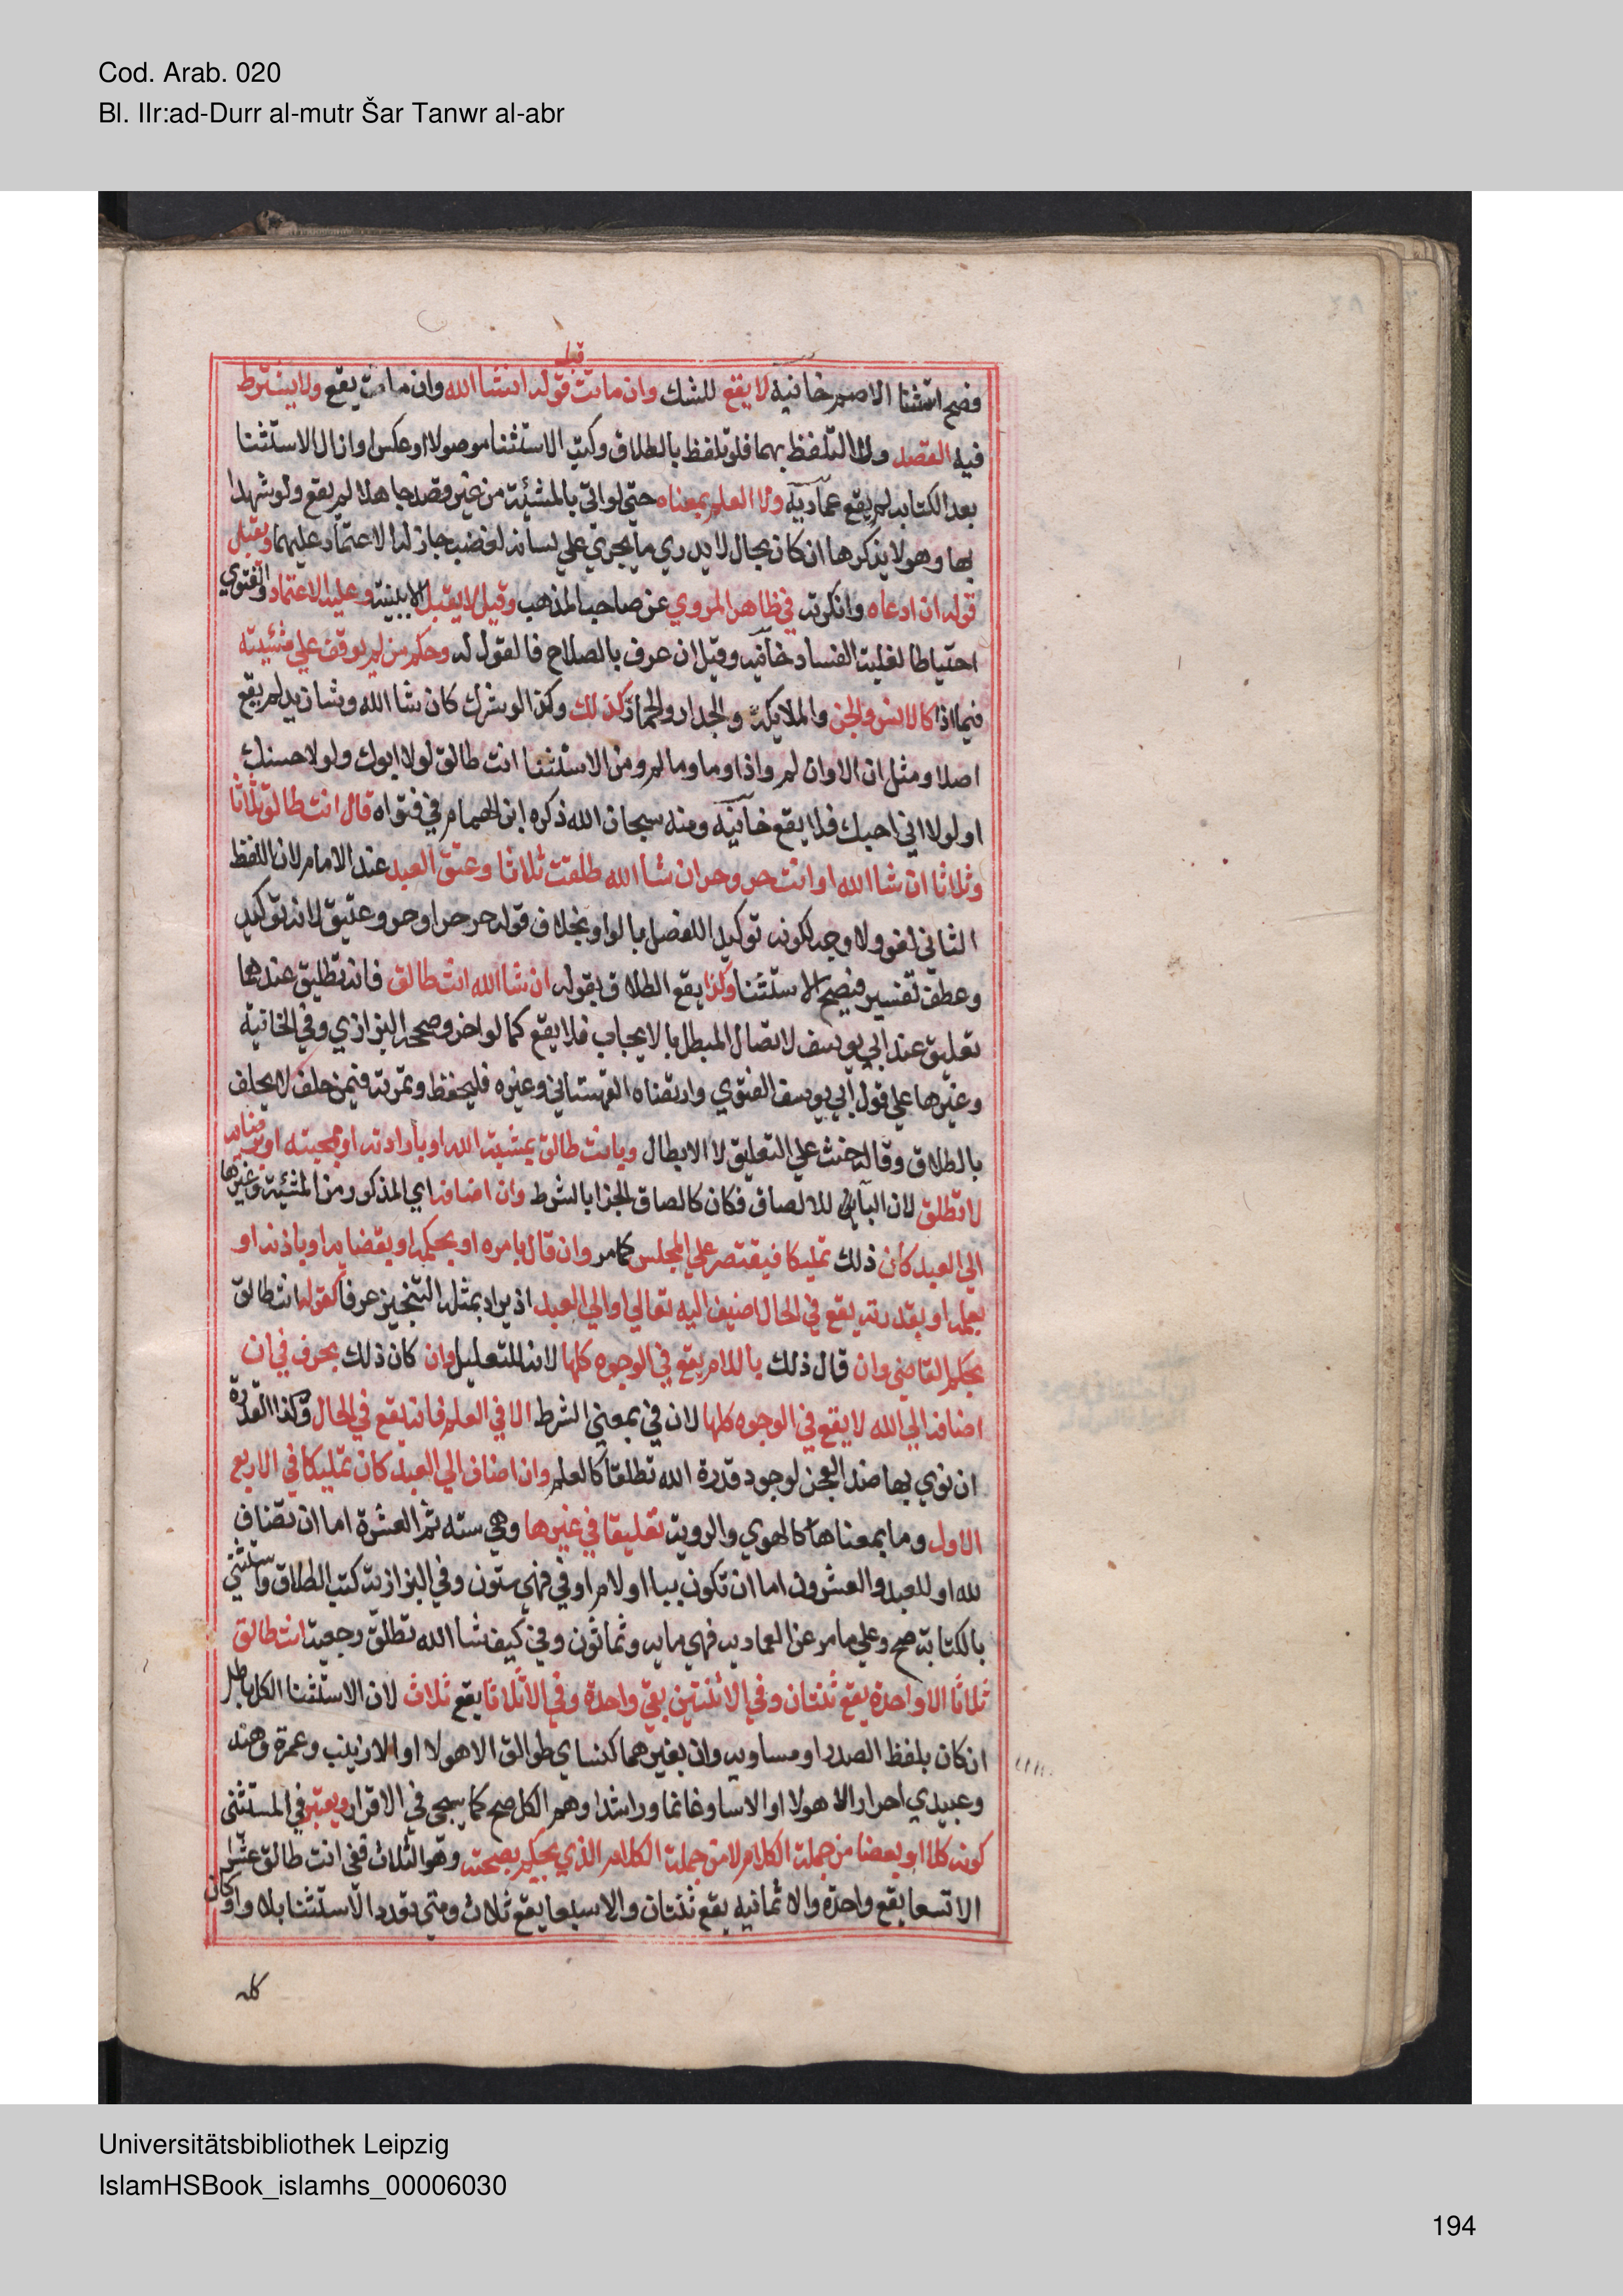 Cod. Arab. 020
Bl. IIr:ad-Durr al-mutr Šar Tanwr al-abr
قبل
فصح استثنا الاصم خانيه لا يقع للشك وان ماتت قوله انشا الله وان مات يقع ولا يشترط
فيه القصد ولا التلفظ بهما فلو تلفظ بالطلاق وكتب الاستثنا موصولا او عكس او ازال الاستثنا
بعد الكتابه لم يقع عمادية ولا العلم بمعناه حتى لو اتي بالمشئية من غير قصد جاهلا لم يقع ولو شهدا
بها وهو لا يذكرها ان كان بحال لا يدري ما يجري علي لسانه لغضب جاز له الاعتماد عليهما ويقبل
قوله ان ادعاه وانكرته في ظاهر المروي عن صاحب المذهب وقيل لا يقبل الا ببينة وعليه الاعتماد والفتوي
احتياطا لغلبة الفساد خانيه وقيل ان عرف بالصلاح فالقول له وحكم من لم يوقف علي مشئيته
فيما اذا كالانس والجن والملايكة والجدار والحمار كذلك وكذا لو شرك كان شا الله وشا زيد لم يقع
اصلا ومثل ان الا وان لم واذا وما وما لم ومن الاستثنا انت طالق لولا ابوك ولولا حسنك
او لولا اني احبك فلا يقع خانية ومنه سبحان الله ذكره ابن الهمام في فتواه قال انت طالق ثلاثا
وثلاثا ان شا الله او انت حر وحر ان شا الله طلقت ثلاثا وعتق العبد عند الامام لان اللفظ
الثاني لغو ولا وجه لكونه توكيدا للفصل بالواو بخلاف قوله حر حر او حر وعتيق لانه توكيد
وعطف تفسير فيصح الاستثنا وكذا يقع الطلاق بقوله ان شا الله انت طالق فانه تطليق عندهما
تعليق عند ابي يوسف لاتصال المبطل بالايجاب فلا يقع كما لو اخر وصححه البزازي وفي الخانية
وغيرها علي قول ابي يوسف الفتوي وارتضاه القهستاني وغيره فليحفظ وثمرته فيمن حلف لا يحلف
بالطلاق وقاله حنث علي التعليق لا الابطال وبانت طالق بمشية الله او بارادته او بمحبته او برضايه
لا تطلق لان الباء للالصاق فكان كالصاق الجزا بالشرط وان اضافه اي المذكور من المشئية وغيرها
الي العبد كان ذلك تمليكا فيقتصر علي المجلس كما مر وان قال بامره او بحكمه او بقضايه او باذنه او
بعلمه او بقدرته يقع في الحال اضيف اليه تعالي او الي العبد اذ يراد بمثله التنجيز عرفا كقوله انت طالق
بحكم القاضي وان قال ذلك باللام يقع في الوجوه كلها لانه للتعليل وان كان ذلك بحرف في ان
اضافه الي الله لا يقع في الوجوه كلها لان في بمعني الشرط الا في العلم فانه يقع في الحال وكذا القدرة
ان نوي بها ضد العجز لوجود قدرة الله تطلقا كالعلم وان اضاف الي العبد كان تمليكا في الاربع
الاول وما بمعناها كالهوي والروية تعليقا في غيرها وهي سته ثم العشرة اما ان تضاف
لله او للعبد والعشرون اما ان تكون ببا او لام او في فهي ستون وفي البزازية كتب الطلاق واستثني
بالكتابة صح وعلي ما مر عن العماديه فهي مايه وثمانون وفي كيف شا الله تطلق رجعية انت طالق
ثلاثا الا واحدة يقع ثنتان وفي الا ثنتين يقي واحدة وفي الا ثلاثا يقع ثلاث لان الاستثنا الكل باطل
ان كان بلفظ الصدر او مساويه وان بغيرهما كنساي طوالق الا هولا او الا زينب وعمرة وهند
وعبيدي احرار الا هولا او الا سا وغانما وراشدا وهم الكل صح كما يسجي في الاقرار ويعتبر في المستثني
كونه كلا او بعضا من جملة الكلام لا من جملة الكلام الذي يحكم بصحته وهو الثلاث ففي انت طالق عشرا
الا تسعا يقع واحدة والا ثمانيه يقع ثنتان والا سبعا يقع ثلاث ومتي تعدد الاستثنا بلا واو كان
كله
Universitätsbibliothek Leipzig
IslamHSBook_islamhs_00006030
194